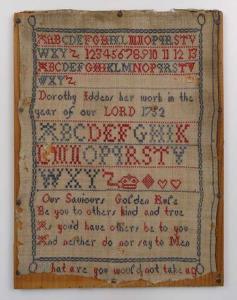 ABCDEFGHIKLMNOPQRSTV
WXYZ 12345678910 11 12 13
ABCDEFGHIKLMNOPQRSTV
WXYZ
Dorothy Iddens her work in the
year of our LORD 1752
ABCDEFGHIK
LMNOPQRSTV
WXYZ
Our Saviours Golden Rule
Be you to others kind and true
As you'd have others be to you
And neither do nor say to Men
hat are you would not take ag